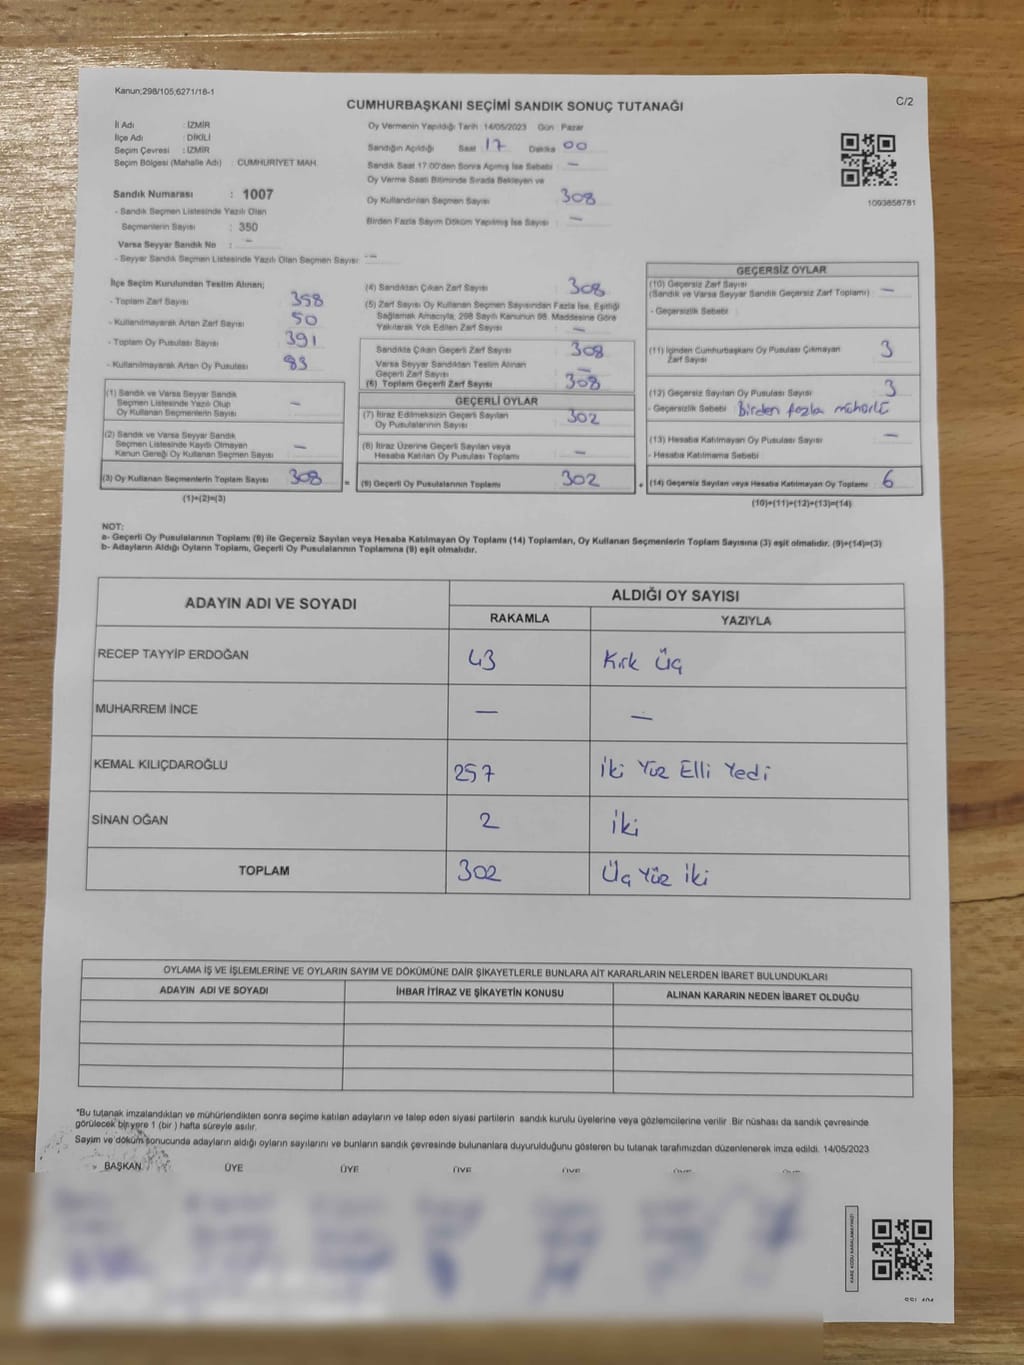 Kanun;298/105,6271/18-1
CUMHURBAŞKANI SEÇİMİ SANDIK SONUÇ TUTANAĞI
C/2
İl Adı : İZMİR
İlçe Adı : DİKİLİ
Seçim Çevresi : İZMİR
Seçim Bölgesi (Mahalle Adı) : CUMHURİYET MAH.
Sandık Numarası : 1007
- Sandık Seçmen Listesinde Yazılı Olan
Seçmenlerin Sayısı : 350
Varsa Seyyar Sandık No : -
- Seyyar Sandık Seçmen Listesinde Yazılı Olan Seçmen Sayısı: -
Oy Vermenin Yapıldığı Tarih :14/05/2023 Gün : Pazar
Sandığın Açıldığı Saat : 17 Dakika : 00
Sandık Saat 17:00'den Sonra Açılmış İse Sebebi : -
Oy Verme Saati Bitiminde Sırada Bekleyen ve
Oy Kullandırılan Seçmen Sayısı : 308
Birden Fazla Sayım Döküm Yapılmış İse Sayısı : -
1093858781
İlçe Seçim Kurulundan Teslim Alınan;
- Toplam Zarf Sayısı : 358
- Kullanılmayarak Artan Zarf Sayısı : 50
- Toplam Oy Pusulası Sayısı : 391
- Kullanılmayarak Artan Oy Pusulası : 83
(1) Sandık ve Varsa Seyyar Sandık
Seçmen Listesinde Yazılı Olup
Oy Kullanan Seçmenlerin Sayısı : -
(2) Sandık ve Varsa Seyyar Sandık
Seçmen Listesinde Kayıtlı Olmayan
Kanun Gereği Oy Kullanan Seçmen Sayısı : -
(3) Oy Kullanan Seçmenlerin Toplam Sayısı : 308
(1)+(2)=(3)
(4) Sandıktan Çıkan Zarf Sayısı : 308
(5) Zarf Sayısı Oy Kullanan Seçmen Sayısından Fazla İse, Eşitliği
Sağlamak Amacıyla, 298 Sayılı Kanunun 98. Maddesine Göre
Yakılarak Yok Edilen Zarf Sayısı : -
Sandıkta Çıkan Geçerli Zarf Sayısı : 308
Varsa Seyyar Sandıktan Teslim Alınan
Geçerli Zarf Sayısı : -
(6) Toplam Geçerli Zarf Sayısı : 308
GEÇERLİ OYLAR
(7) İtiraz Edilmeksizin Geçerli Sayılan
Oy Pusulalarının Sayısı : 302
(8) İtiraz Üzerine Geçerli Sayılan veya
Hesaba Katılan Oy Pusulası Toplamı : -
= (9) Geçerli Oy Pusulalarının Toplamı : 302 +
GEÇERSİZ OYLAR
(10) Geçersiz Zarf Sayısı
(Sandık ve Varsa Seyyar Sandık Geçersiz Zarf Toplamı) : -
- Geçersizlik Sebebi :
(11) İçinden Cumhurbaşkanı Oy Pusulası Çıkmayan
Zarf Sayısı : 3
(12) Geçersiz Sayılan Oy Pusulası Sayısı : 3
- Geçersizlik Sebebi : Birden fazla mühürlü
(13) Hesaba Katılmayan Oy Pusulası Sayısı : -
- Hesaba Katılmama Sebebi :
(14) Geçersiz Sayılan veya Hesaba Katılmayan Oy Toplamı : 6
(10)+(11)+(12)+(13)=(14)
NOT:
a- Geçerli Oy Pusulalarının Toplamı (9) ile Geçersiz Sayılan veya Hesaba Katılmayan Oy Toplamı (14) Toplamları, Oy Kullanan Seçmenlerin Toplam Sayısına (3) eşit olmalıdır. (9)+(14)=(3)
b- Adayların Aldığı Oyların Toplamı, Geçerli Oy Pusulalarının Toplamına (9) eşit olmalıdır.
ADAYIN ADI VE SOYADI ALDIĞI OY SAYISI
RAKAMLA YAZIYLA
RECEP TAYYİP ERDOĞAN 43 Kırk Üç
MUHARREM İNCE - -
KEMAL KILIÇDAROĞLU 257 İki Yüz Elli Yedi
SİNAN OĞAN 2 İki
TOPLAM 302 Üç Yüz İki
OYLAMA İŞ VE İŞLEMLERİNE VE OYLARIN SAYIM VE DÖKÜMÜNE DAİR ŞİKAYETLERLE BUNLARA AİT KARARLARIN NELERDEN İBARET BULUNDUKLARI
ADAYIN ADI VE SOYADI İHBAR İTİRAZ VE ŞİKAYETİN KONUSU ALINAN KARARIN NEDEN İBARET OLDUĞU
*Bu tutanak imzalandıktan ve mühürlendikten sonra seçime katılan adayların ve talep eden siyasi partilerin sandık kurulu üyelerine veya gözlemcilerine verilir. Bir nüshası da sandık çevresinde
görülecek bir yere 1 (bir ) hafta süreyle asılır.
Sayım ve döküm sonucunda adayların aldığı oyların sayılarını ve bunların sandık çevresinde bulunanlara duyurulduğunu gösteren bu tutanak tarafımızdan düzenlenerek imza edildi. 14/05/2023
BAŞKAN ÜYE ÜYE ÜYE ÜYE ÜYE ÜYE